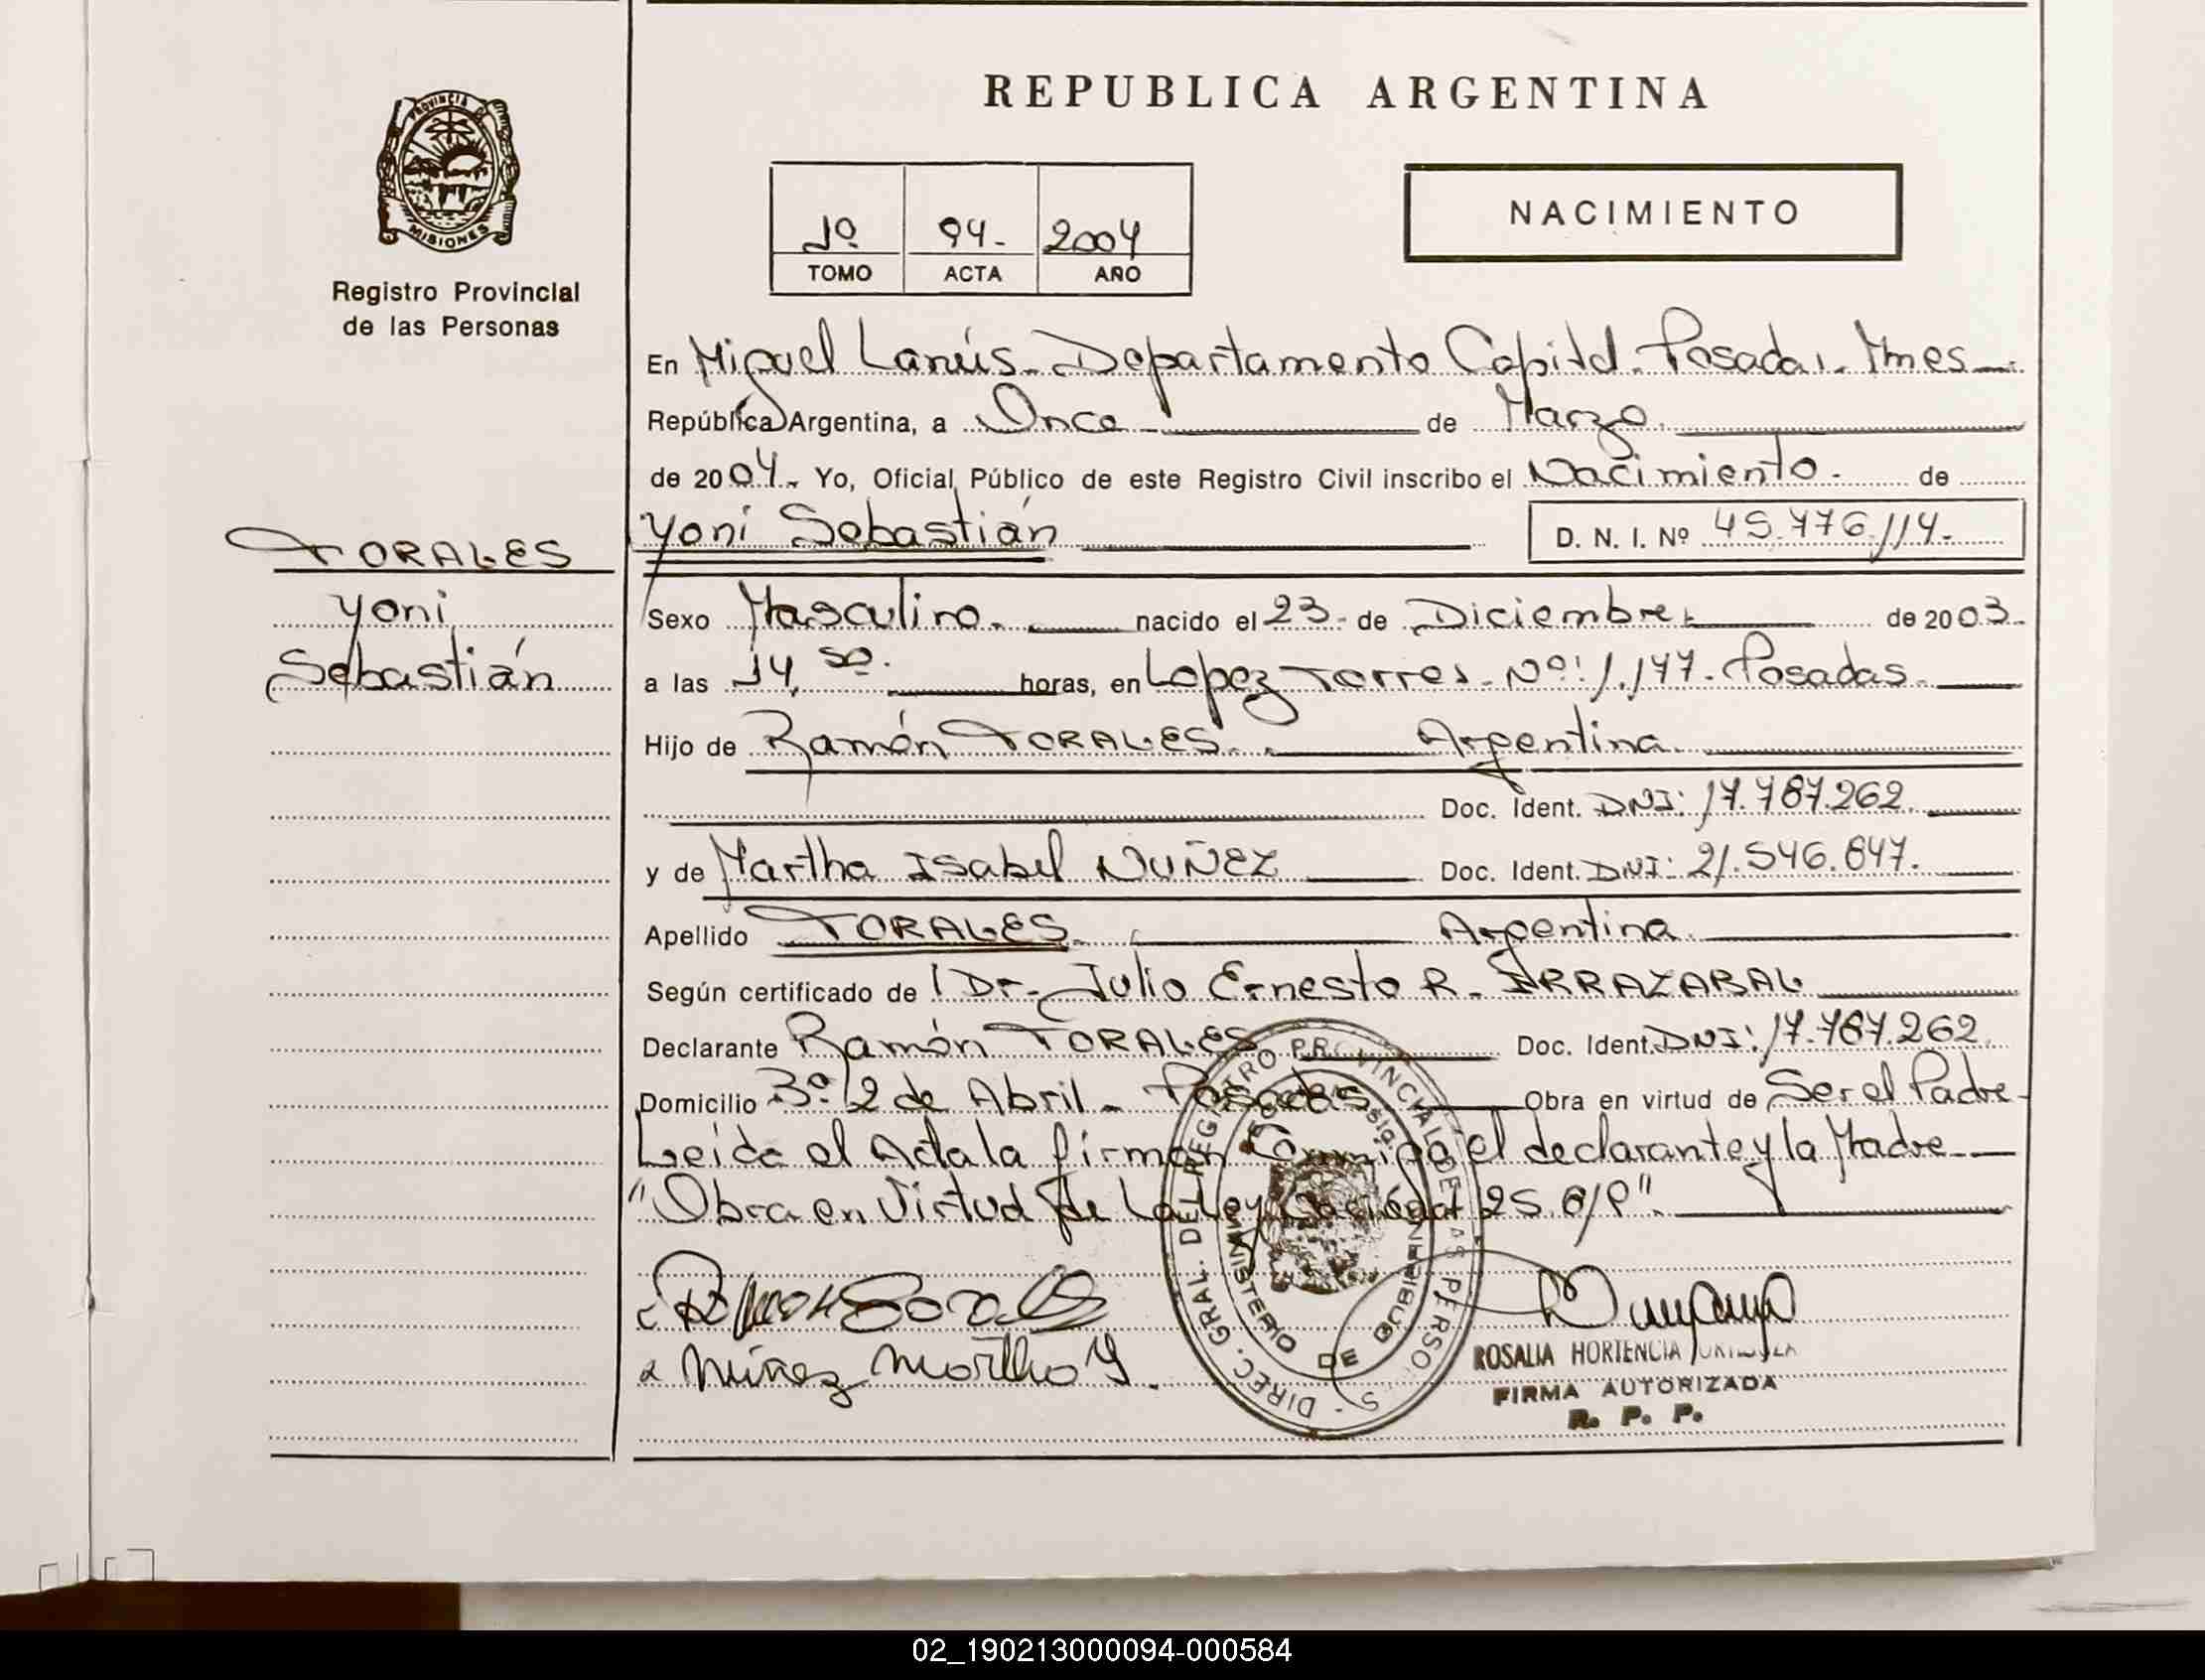 REPUBLICA ARGENTINA
PROVINCIA DE MISIONES
Registro Provincial
de las Personas
1º 94- 2004
TOMO ACTA AÑO
NACIMIENTO
En Miguel Lanús. Departamento Capital. Posadas. Mnes
República Argentina, a Once de Marzo.
de 2004. Yo, Oficial Público de este Registro Civil inscribo el Nacimiento. de
Yoni Sebastián D. N. I. Nº 45.776.114.
TORALES
Yoni
Sebastián
Sexo Masculino. nacido el 23 de Diciembre de 2003.
a las 14,50. horas, en Lopez Torres. Nº: 1.177. Posadas.
Hijo de Ramón TORALES. Argentina.
Doc. Ident. DNI: 17.787.262.
y de Martha Isabel NUÑEZ Doc. Ident. DNI: 21.546.847.
Apellido TORALES. Argentina.
Según certificado de Dr. Julio Ernesto R. IRRAZABAL
Declarante Ramón TORALES Doc. Ident. DNI: 17.787.262.
Domicilio Bº 2 de Abril. Posadas Obra en virtud de Ser el Padre.
Leída el Acta la firman Conmigo el declarante y la Madre
"Obra en Virtud de La Ley Nacional 25.819".
Ramon Torales
Nuñez Martha Y.
DIREC. GRAL. DEL REGISTRO PROVINCIAL DE LAS PERSONAS
MINISTERIO DE GOBIERNO
ROSALIA HORTENCIA
FIRMA AUTORIZADA
R. P. P.
02_190213000094-000584